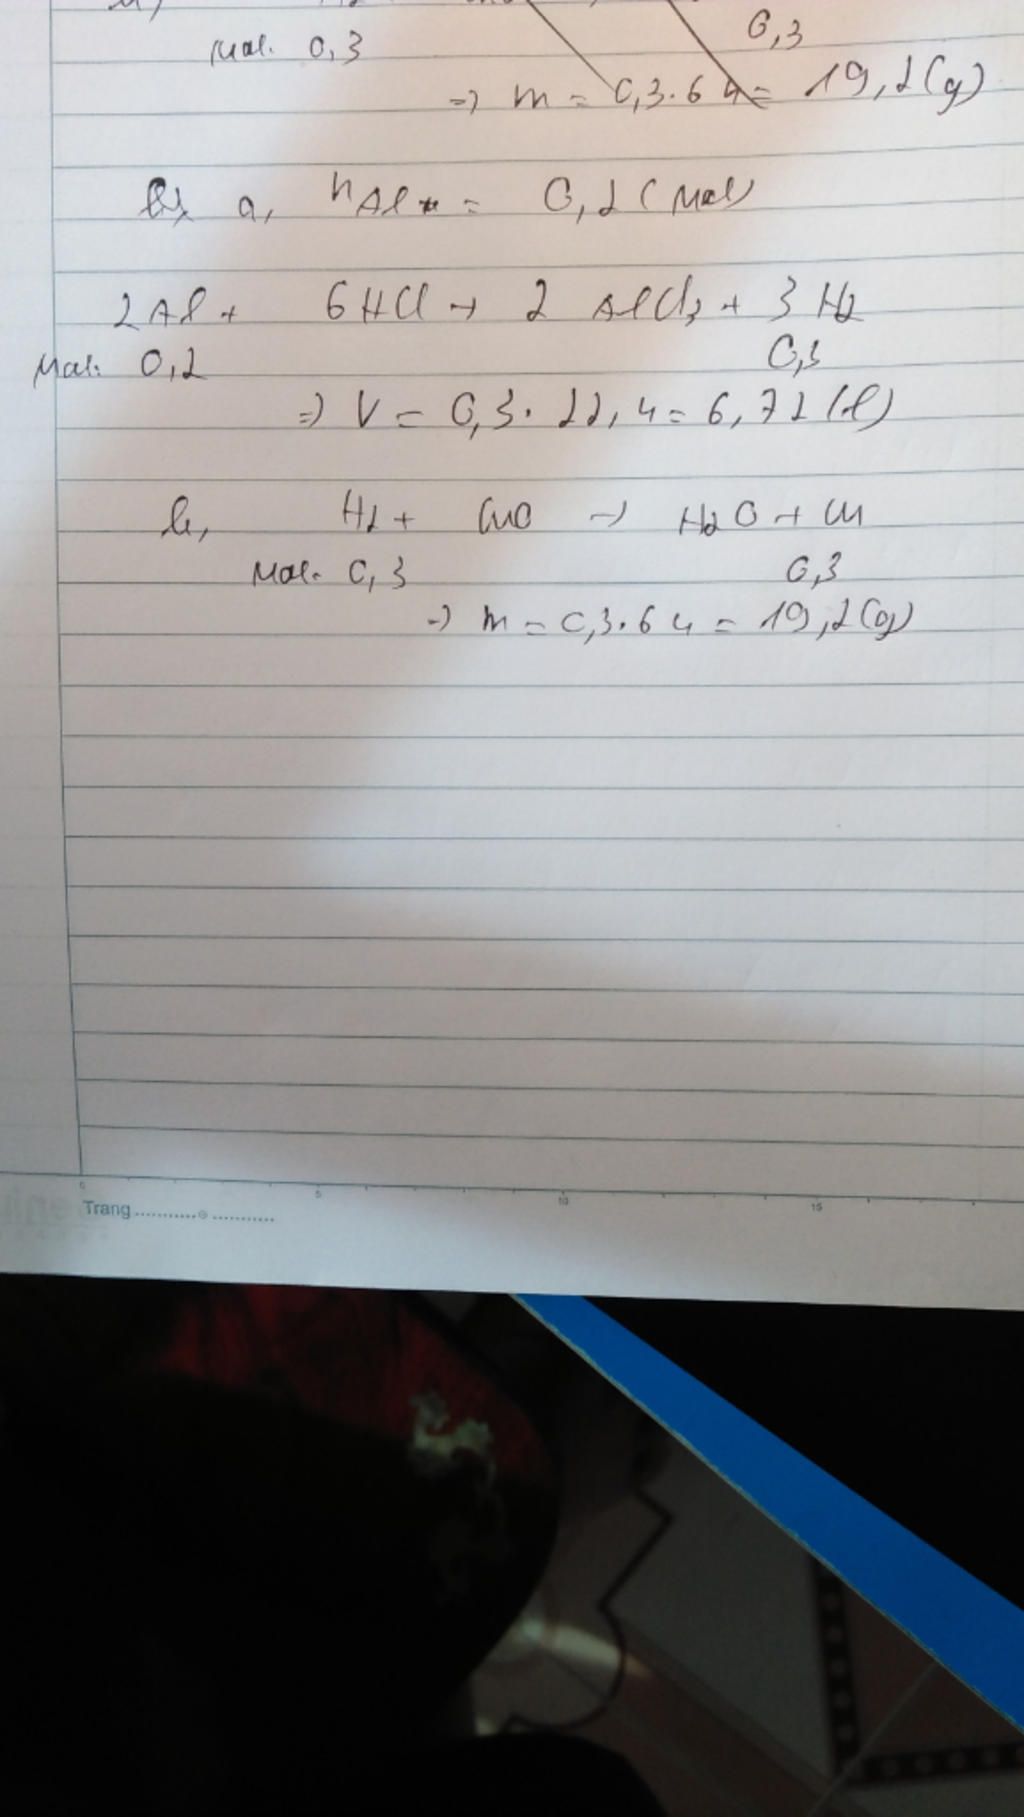 Mol: 0,3
0,3
=> m = 0,3.64 = 19,2(g)
a, nAl = 0,2 (mol)
2Al + 6HCl → 2 AlCl3 + 3 H2
Mol: 0,2 0,3
=> V = 0,3. 22,4 = 6,72 (l)
b, H2 + CuO → H2O + Cu
Mol: 0,3 0,3
→ m = 0,3.64 = 19,2(g)
0 5 10 15
Trang